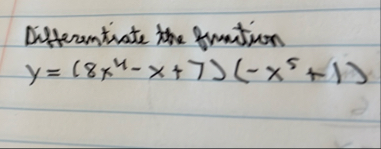 Differentiate the function
y = (8x⁴ - x + 7)(-x⁵ + 1)